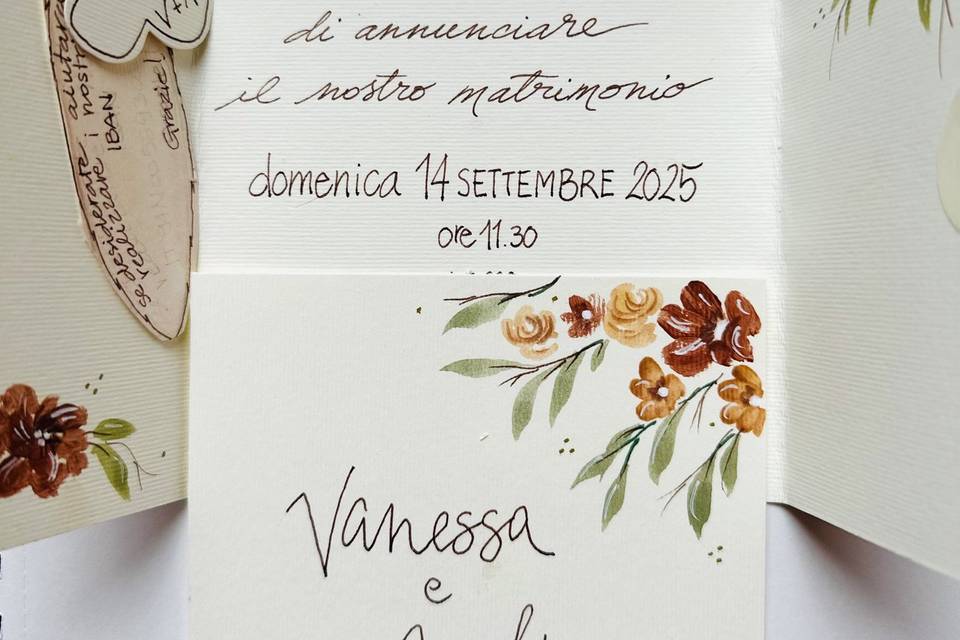 di annunciare
il nostro matrimonio
domenica 14 SETTEMBRE 2025
ore 11.30
Vanessa
e
desiderate aiutar
realizzare i nostr
IBAN
Grazie!